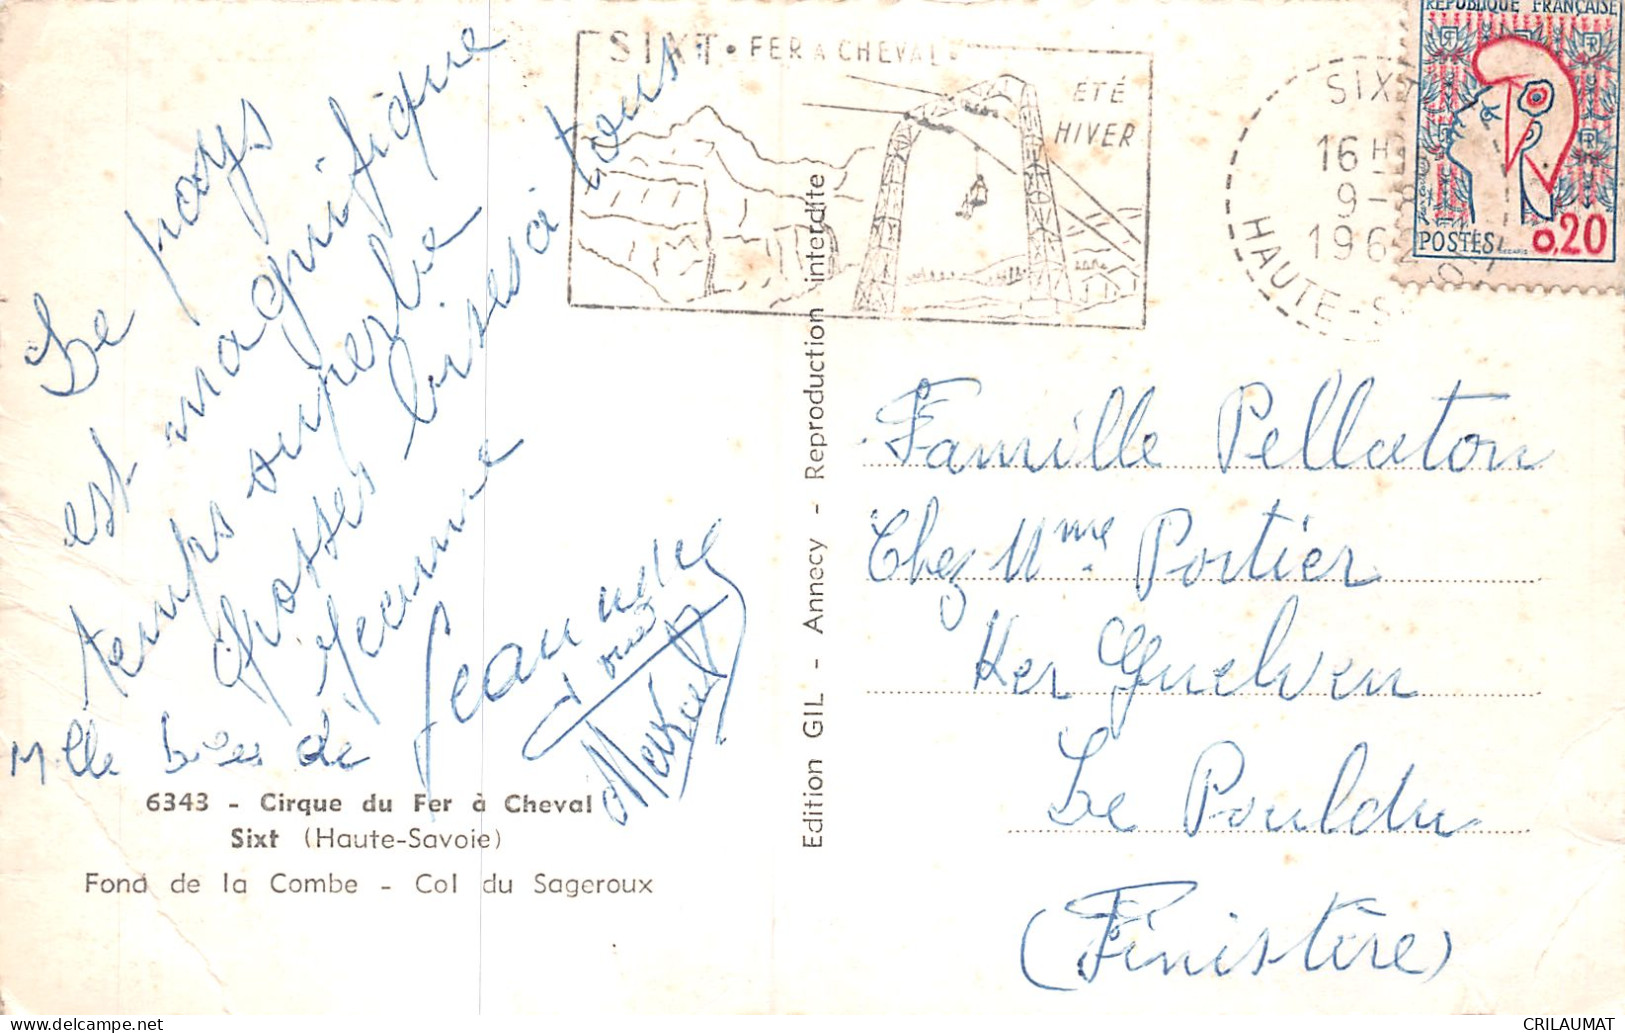 Le pays
est magnifique
temps superbe
grosses bises à tous
Jeanne
Mlle bises de
Jeannine
Louis
6343 - Cirque du Fer à Cheval
Sixt (Haute-Savoie)
Fond de la Combe - Col du Sageroux
Edition GIL - Annecy - Reproduction interdite
SIXT • FER A CHEVAL •
ÉTÉ
HIVER
SIXT
16 H
9-8
1962
HAUTE-S
REPUBLIQUE FRANÇAISE
RF
POSTES
0.20
Famille Pellaton
Chez Mme Portier
Ker Guelven
Le Pouldu
(Finistère)
CRILAUMAT